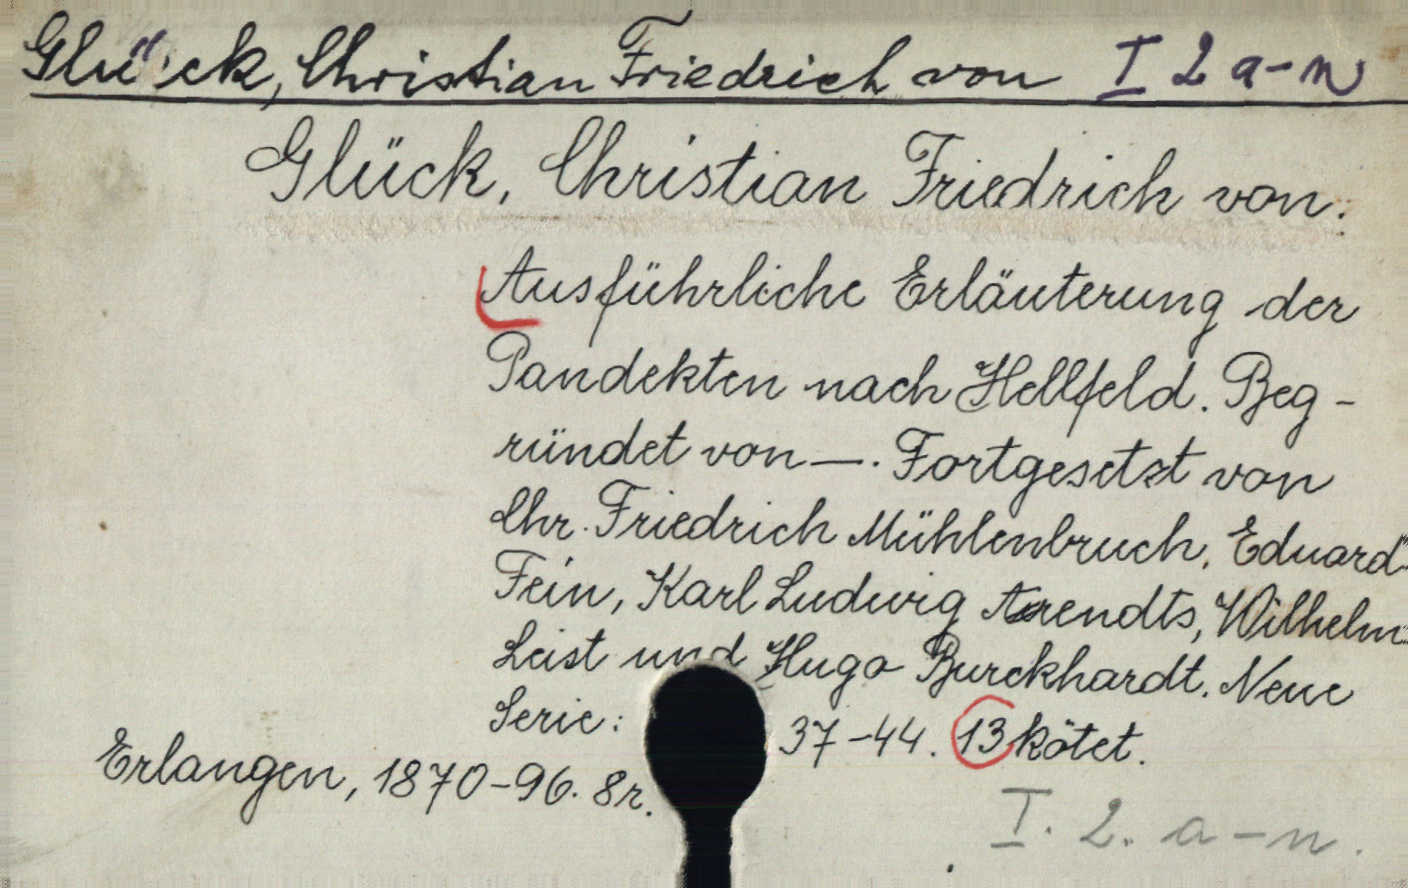 Glück, Christian Friedrich von I 2 a-n
Glück, Christian Friedrich von.
Ausführliche Erläuterung der
Pandekten nach Hellfeld. Beg-
ründet von —. Fortgesetzt von
Chr. Friedrich Mühlenbruch, Eduard
Fein, Karl Ludwig Arendts, Wilhelm
Leist und Hugo Burckhardt. Neue
Serie: 37-44. 13 kötet.
Erlangen, 1870-96. 8r.
I. 2. a-n.